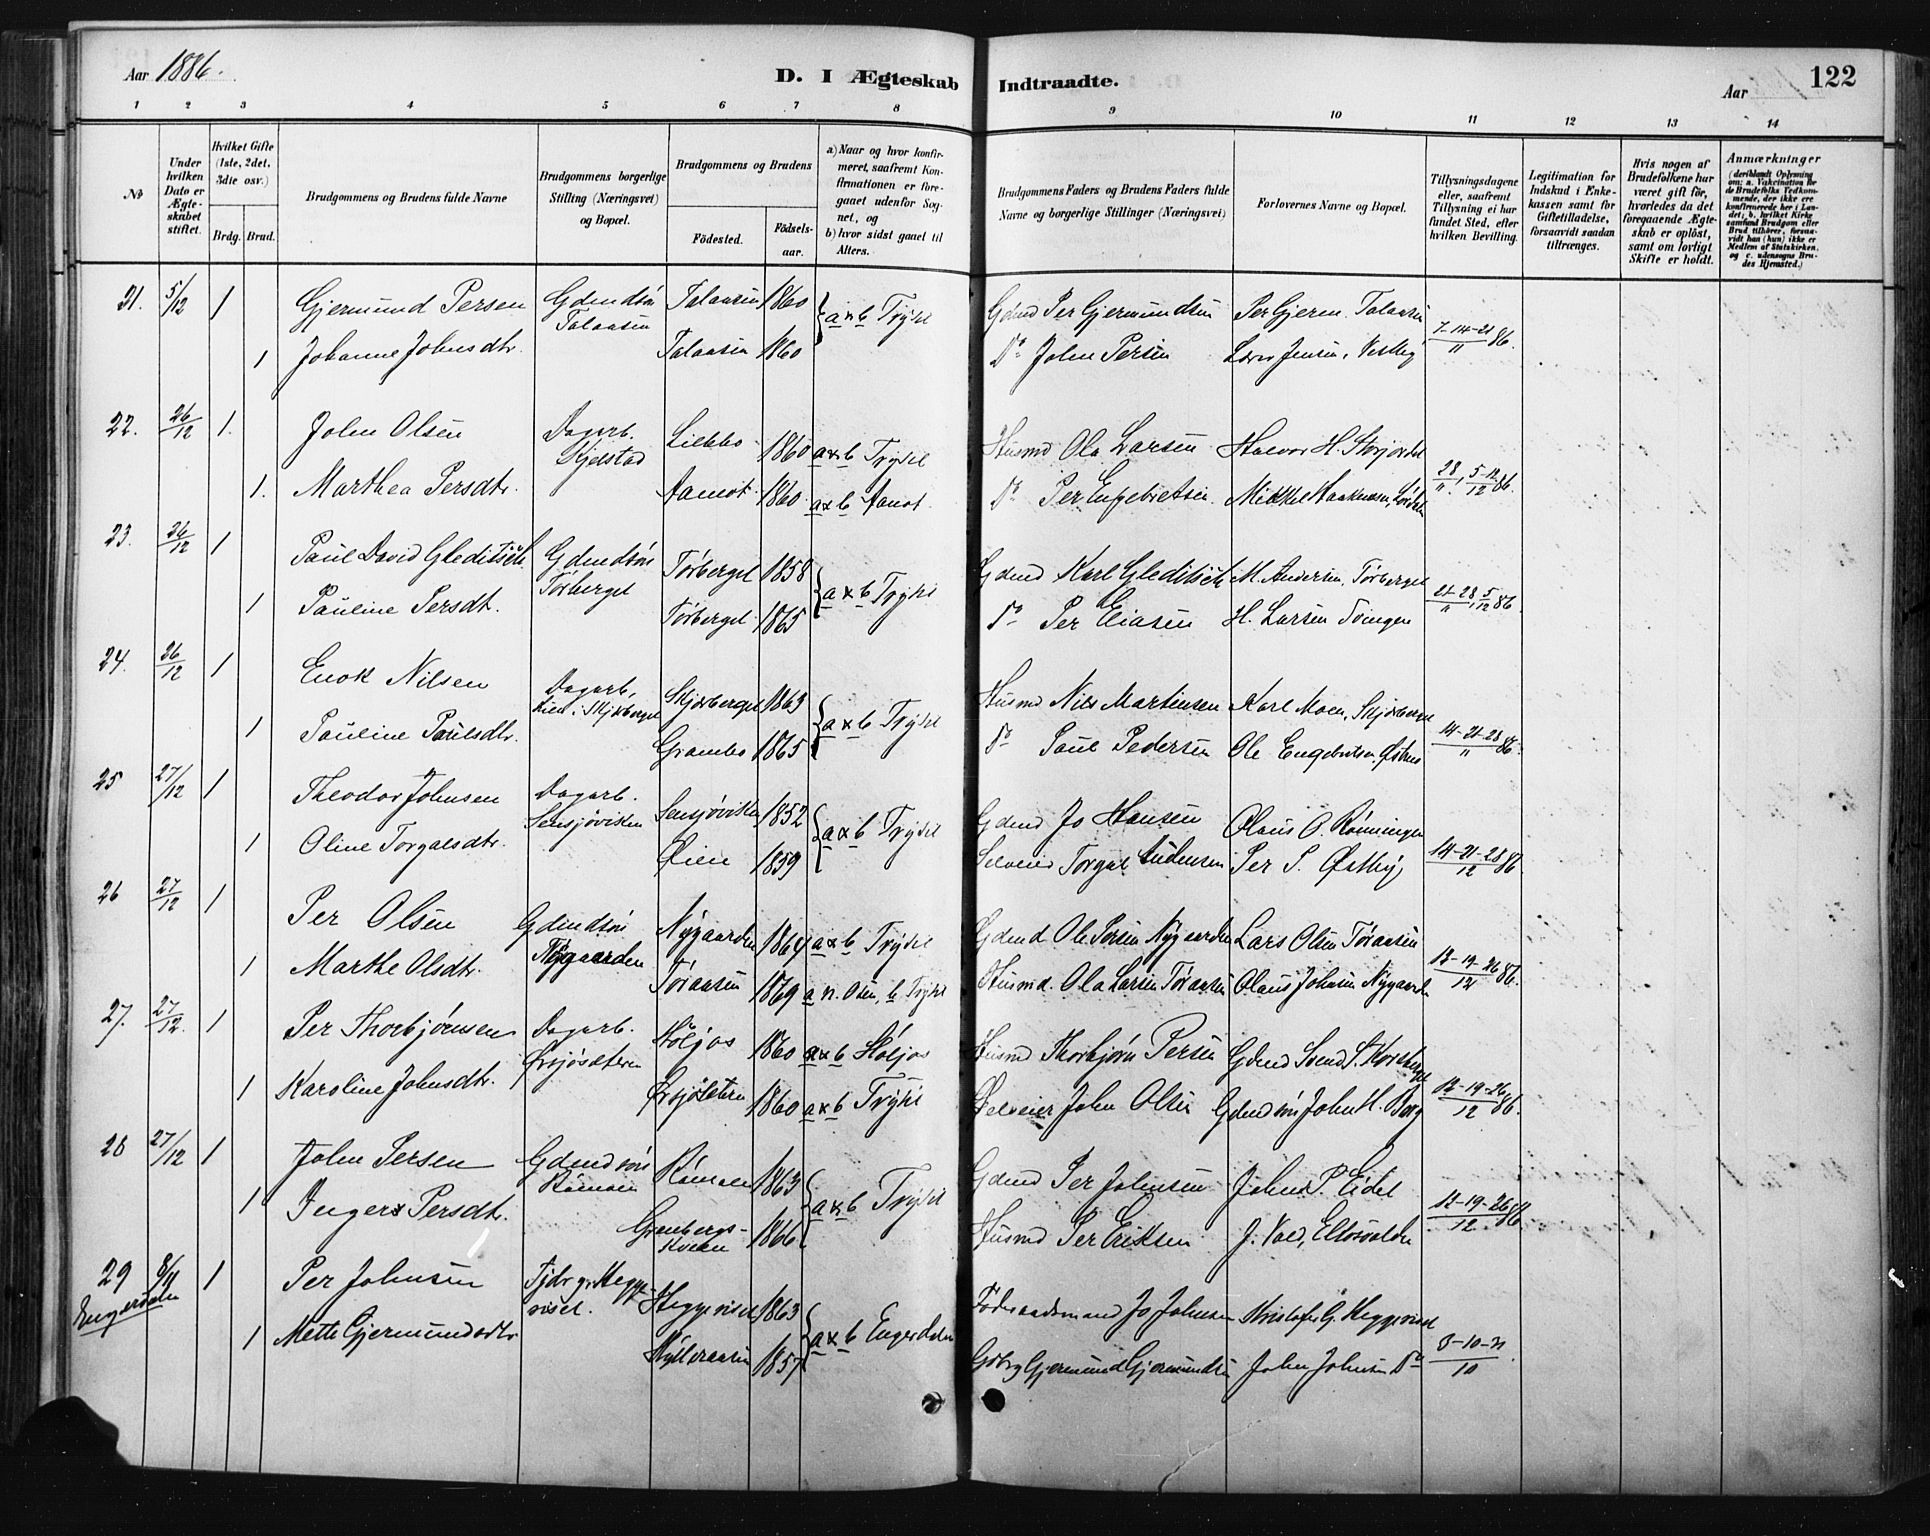 Aar 1886.
D. I Ægteskab Indtraadte.
Aar 122
1 2 3 4 5 6 7 8 9 10 11 12 13 14
№
Under hvilken Dato er Ægteskabet stiftet.
Hvilket Gifte (1ste, 2det, 3die osv.)
Brdg. Brud.
Brudgommens og Brudens fulde Navne
Brudgommens borgerlige Stilling (Næringsvei) og Bopæl.
Brudgommens og Brudens
Födested.
Födselsaar.
a) Naar og hvor konfirmeret, saafremt Konfirmationen er foregaaet udenfor Sognet, og
b) hvor sidst gaaet til Alters.
Brudgommens Faders og Brudens Faders fulde Navne og borgerlige Stillinger (Næringsvei)
Forlovernes Navne og Bopæl.
Tillysningsdagene eller, saafremt Tillysning ei har fundet Sted, efter hvilken Bevilling.
Legitimation for Indskud i Enkekassen samt for Giftetilladelse, forsaavidt saadan tiltrænges.
Hvis nogen af Brudefolkene har været gift för, hvorledes da det foregaaende Ægteskab er oplöst, samt om lovligt Skifte er holdt.
Anmærkninger
(deriblandt Oplysning om: a. Vakcination for de Brudefolks Vedkommende, der ikke ere konfirmerede her i Landet; b. hvilket Kirkesamfund Brudgom eller Brud tilhører, forsaavidt han (hun) ikke er Medlem af Statskirken, og c. udensogns Brudes Hjemsted.)
21. 5/12 1 Gjermund Persen Gdmdsön Talaasen Talaasen 1860 a & b Trysil Gdmd Per Gjermundsen Per Gjerm. Talaasen 7-14-21/11 86.
1 Johanne Johnsdtr. Talaasen 1860 Do John Persen Jensen, Vestby
22. 26/12 1. John Olsen Dagarb. Kjelstad Liebbo 1860 a & b Trysil Husmd Ola Larsen Halvor H. 28/11, 5-12/12 86.
1. Marthea Persdtr. Aamot 1860 a & b Aamot. Do Per Engebretsen Mikkel Haakensen,
23. 26/12 1 Paul David Gleditsch Gdmdsön Törberget Törberget 1858 a & b Trysil Gdmd Karl Gleditsch M. Andersen, Törberget 21-28/11, 5/12 86
1 Pauline Persdt. Törberget 1865 Do Per Eliasen H. Larsen Svingen
24. 26/12 1 Enok Nilsen Dagarb. Skjærberget Skjærberget 1863 a & b Trysil Husmd Nils Martinsen Karl Moen, Skjærberget 14-21-28/11 86.
1 Pauline Paulsdtr. Grambo 1865 Do Paul Pedersen Ole Engebretsen, Østmo
25 27/12 1 Theodor Johnsen Dagarb. Sensjöviken Sensjöviken 1852 a & b Trysil Gdmd Jo Hansen Olaus O. Rönningen 14-21-28/12 86
1 Oline Torgalsdtr. Öien 1859 Selveier Torgal Andersen Per P. Østby
26 27/12 1 Per Olsen Gdmdsön Nygaarden Nygaarden 1864 a & b Trysil Gdmd Ole Persen Nygaarden Lars Olsen Töraasen 12-19-26/12 86.
1 Marthe Olsdtr. Töraasen 1869 a n. Osen, b Trysil Husmd. Ola Larsen Töraasen Olaus Johnsen Nygaarden
27. 27/12. 1 Per Thorbjörnsen Dagarb. Örsjösæteren Höljes 1860 a & b Höljes Husmd Thorbjörn Persen Gdmd Svend S. Korsberget 12-19-26/12 86.
1 Karoline Johnsdtr. Örsjösetern 1860 a & b Trysil Selveier John Olsen Gdmdsön John H. Berg
28 27/12 1 John Persen Gdmdsön Römoen Römoen 1863 a & b Trysil Gdmd Per Johnsen John P. Eidet 12-19-26/12 86
1 Inger Persdtr. Grønbergskveen 1866 Husmd Per Eriksen J. Vad,
29 8/11 1 Per Johnsen Tjdr. p. Heggeriset. Heggeriset 1863 a & b Engerdalen Föderaadsmand Jo Johnsen Kristofer G. Heggeriset 3-10-31/10
Engerdalen 1 Mette Gjermundsdtr 1857 Gdbrg Gjermund Gjermundsen John Johnsen Do